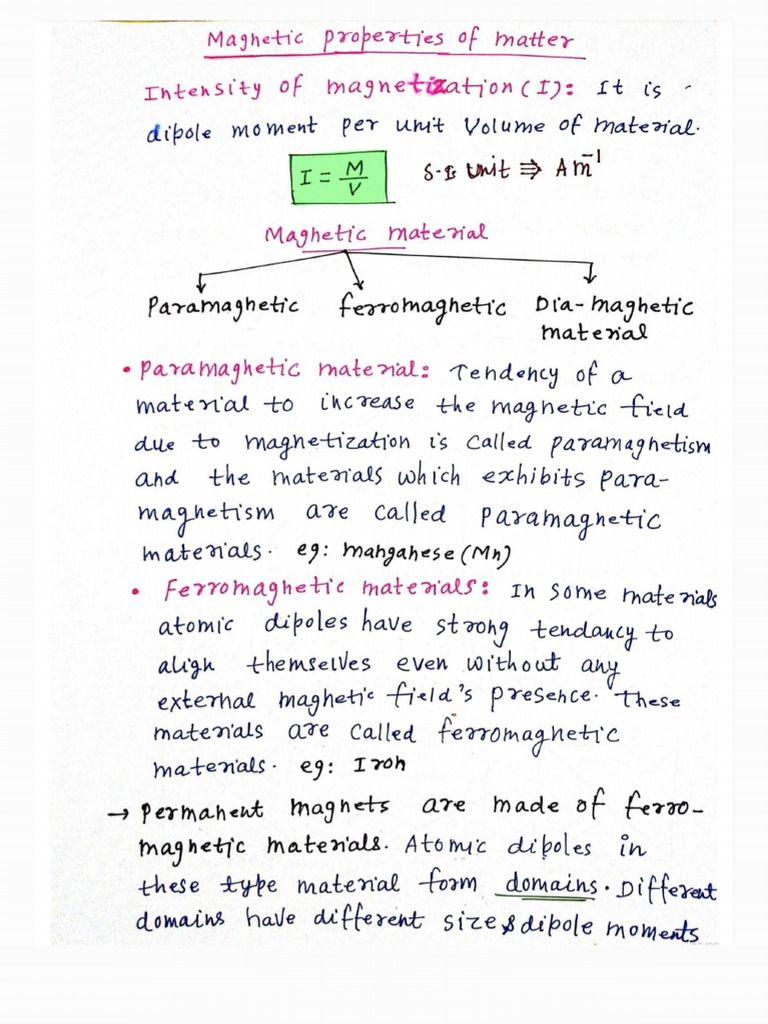 Magnetic properties of matter
Intensity of magnetization (I): It is
dipole moment per unit Volume of material.
I = M/V S.I unit ⇒ Am⁻¹
Magnetic material
Paramagnetic ferromagnetic Dia-magnetic
material
• Paramagnetic material: Tendency of a
material to increase the magnetic field
due to magnetization is called paramagnetism
and the materials which exhibits para-
magnetism are called paramagnetic
materials. eg: manganese (Mn)
• Ferromagnetic materials: In some materials
atomic dipoles have strong tendancy to
align themselves even without any
external magnetic field's presence. These
materials are called ferromagnetic
materials. eg: Iron
→ Permanent magnets are made of ferro-
magnetic materials. Atomic dipoles in
these type material form domains. Different
domains have different size & dipole moments